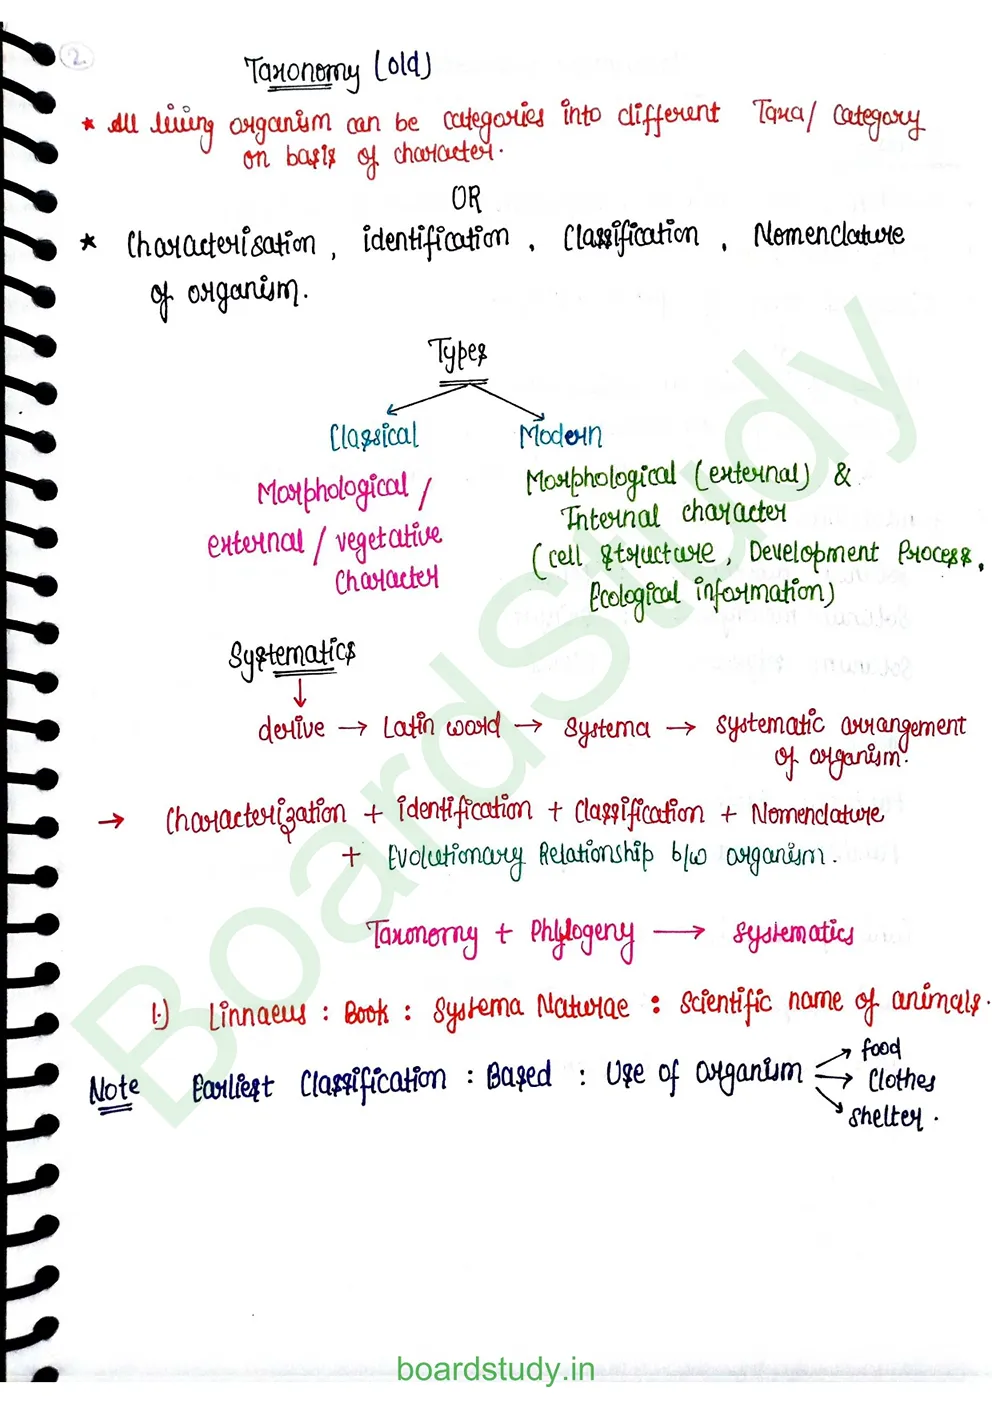 2.
Taxonomy (old)
* All living organism can be categories into different Taxa/ Category
on basis of character.
OR
* Characterisation, identification, Classification, Nomenclature
of organism.
Types
Classical Modern
Morphological /
external / vegetative
Character
Morphological (external) &
Internal character
(cell structure, Development Process,
Ecological information)
Systematics
↓
derive → Latin word → Systema → Systematic arrangement
of organism.
→ Characterization + identification + Classification + Nomenclature
+ Evolutionary Relationship b/w organism.
Taxonomy + Phylogeny → Systematics
1.) Linnaeus : Book : Systema Naturae : Scientific name of animals.
Note Earliest Classification : Based : Use of organism → food
→ Clothes
→ Shelter.
BoardStudy
boardstudy.in